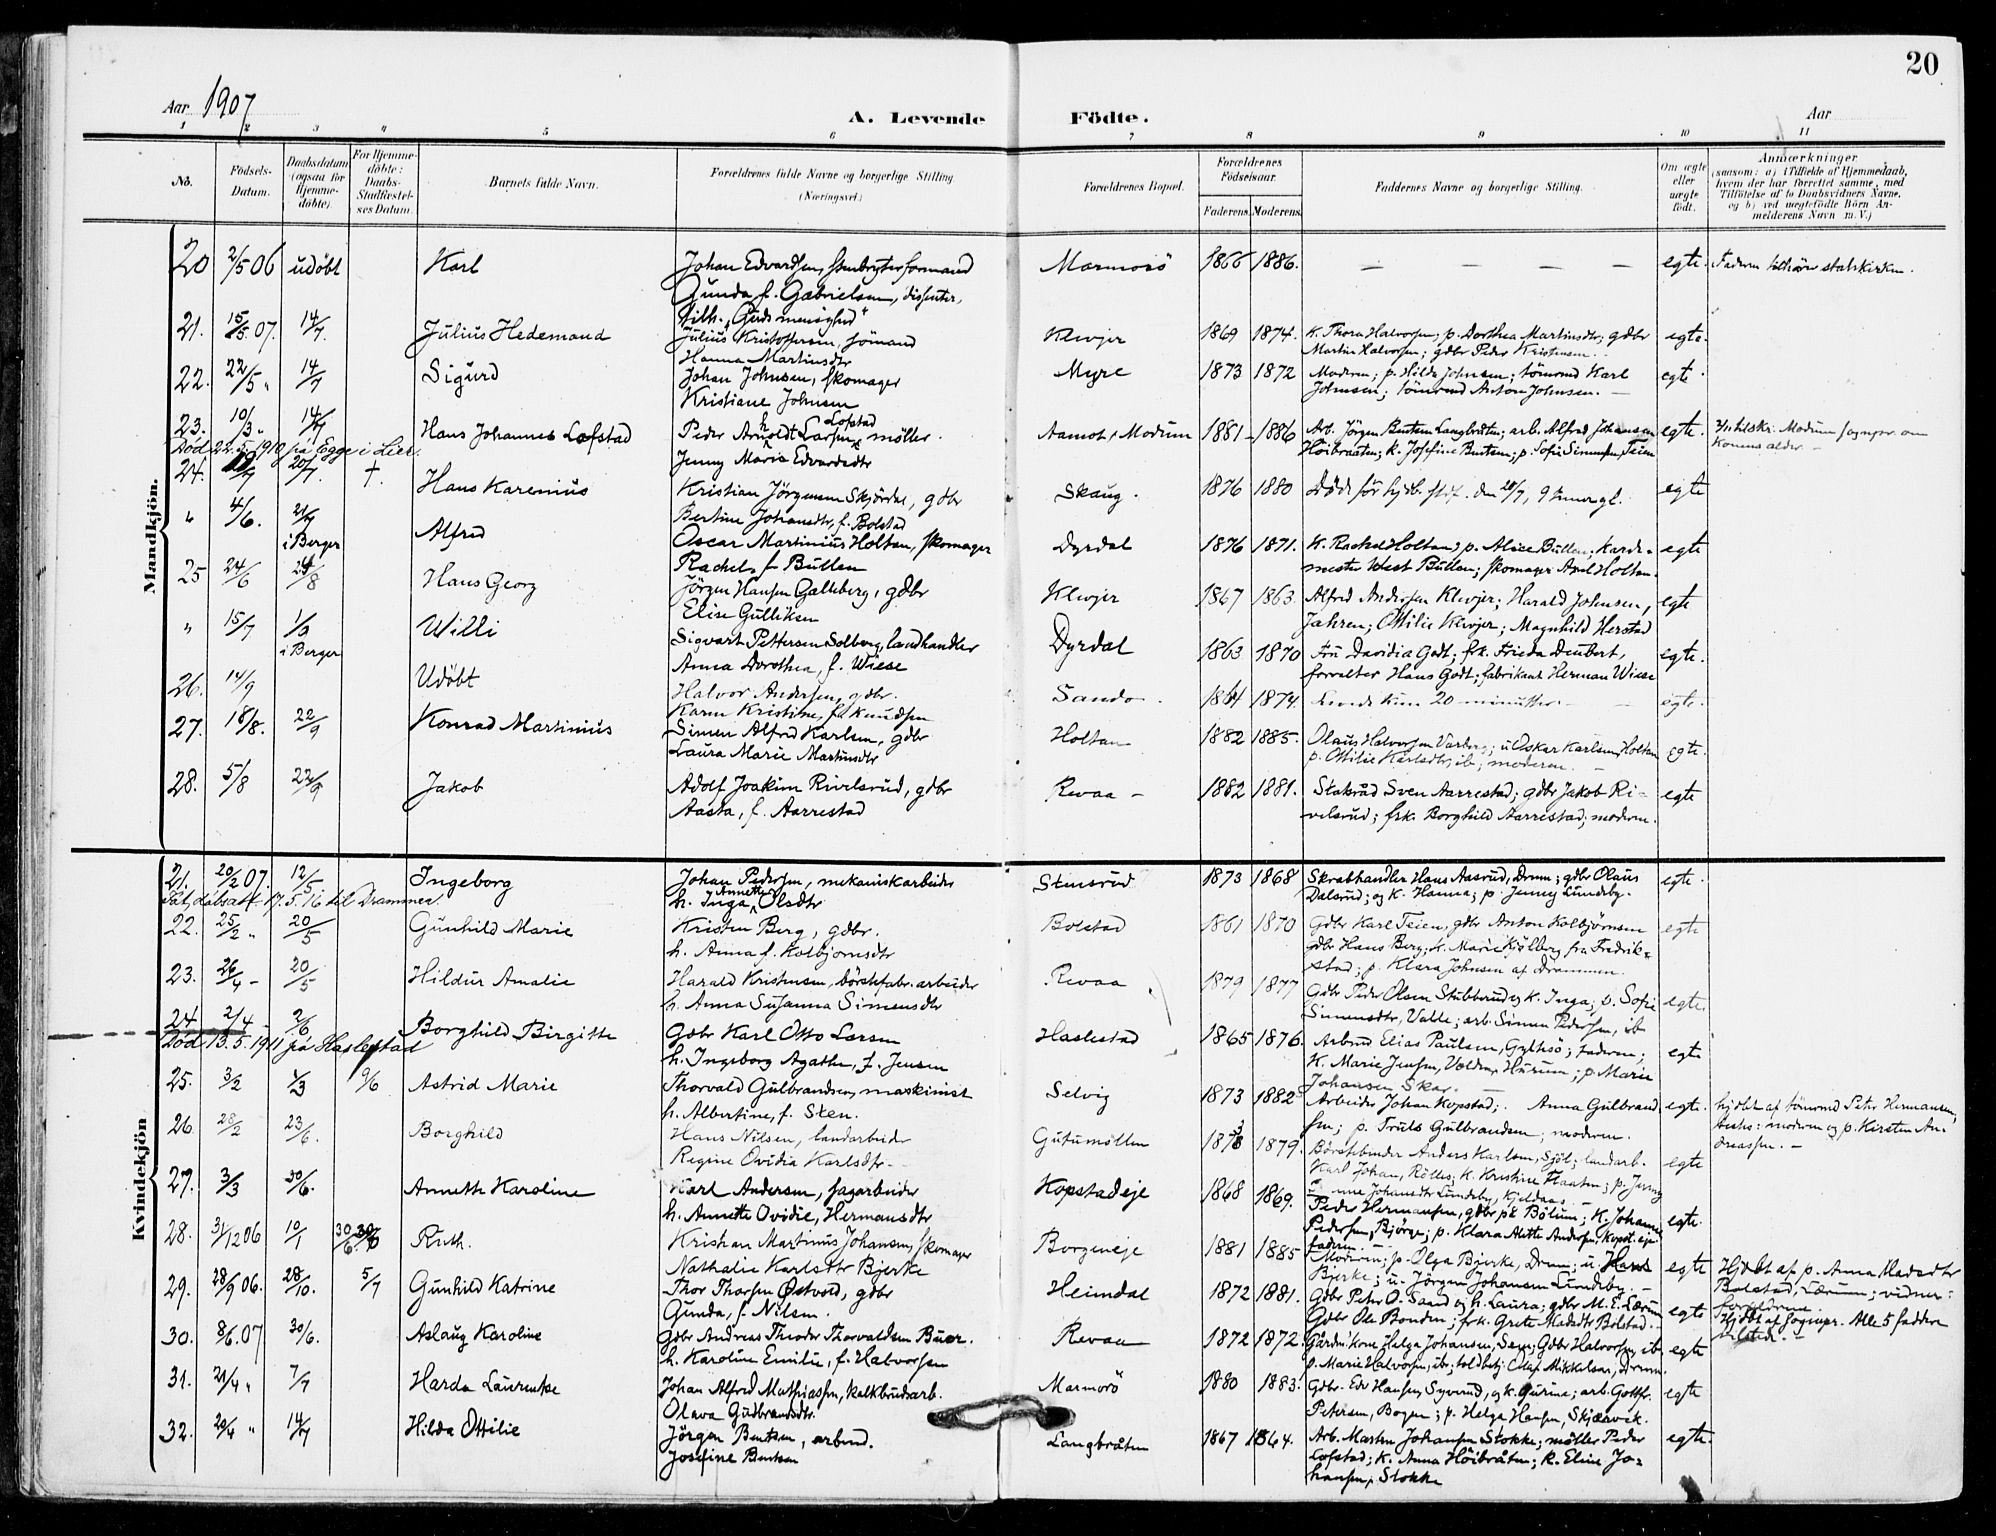 20
Aar 1907
A. Levende Födte.
Aar
1 2 3 4 5 6 7 8 9 10 11
No.
Födsels-Datum.
Daabsdatum (ogsaa for Hjemmedöbte).
For Hjemmedöbte: Daabs-Stadfæstelses Datum.
Barnets fulde Navn.
Forældrenes fulde Navne og borgerlige Stilling (Næringsvei.)
Forældrenes Bopæl.
Forældrenes Födselsaar.
Faderens. Moderens.
Faddernes Navne og borgerlige Stilling.
Om ægte eller uægte født.
Anmærkninger (saasom: a) i Tilfælde af Hjemmedaab, hvem der har forrettet samme, med Tilföielse af to Daabsvidners Navne, og b) ved uægtefödte Börn Anmelderens Navn m. V.)
Mandkjön.
20 2/5 06 udöbt Karl Johan Edvardsen, stenbryterformand Marmorö 1866 1886. — — — — — egte. Faderen tilhörer statskirken.
Gunda f. Gabrielsen, disenter,
tilh. "Guds menighed"
21. 15/5 07. 14/7. Julius Hedemand Julius Kristoffersen, sömand Klevjer 1869 1874. k. Thora Halvorsen; p. Dorthea Martinsdtr; gdbr egte.
Hanna Martinsdtr Martin Halvorsen; gdbr Peder Kristensen.
22. 22/5 " 14/7 Sigurd Johan Johnsen, skomager Myre 1873 1872 Moderen; p. Hilda Johnsen; tömrmd Karl egte.
Kristiane Johnsen Johnsen; tömrmd Anton Johnsen. —
23. 10/3 " 14/7 Hans Johannes Lofstad Peder Arnholdt Larsen Lofstad, möller. Aamot, Modum 1881 1886 Arb. Jörgen Bentsen Langbråten; arb. Alfred Johansen egte.
Död 22.5.1910 på Egge i Lier.
Jenny Marie Edvardsdtr Höibraaten; k. Josefine Bentsen; p. Sofie Simensen, Teien
24. 20/7. †. Hans Karenius Kristian Jörgensen Skjördal, gdbr Skaug. 1876 1880 Död för hjdb. stdf. egte
Bertine Johansdtr, f. Bolstad
" 4/6. 21/7 i Berger Alfred Oscar Martinius Holtan, skomager Dyrdal 1876 1871. K. Rachel Holtan; p. Alice Bullen; karde- egte
Rachel, f Bullen mester West Bullen; skomager Axel Holtan.
25 24/6 24/8 Hans Georg Jörgen Hansen Galleberg, gdbr Klevjer 1867 1863. Alfred Andersen Klevjer; Harald Johnsen, egte
Elise Gulliksen Jahren; Ottilie Klevjer; Magnhild Herstad
" 15/7 1/9 i Berger Willi Sigvart Pettersen Solberg, landhandler Dyrdal 1863 1870 Fru Davidia Godt; frk. Frieda Deubert, egte.
Anna Dorothea, f. Wiese forvalter Hans Godt; fabrikant Herman Wiese
26. 14/9 Udöbt Halvor Andersen, gdbr. Sando. 1864 1874. Levede kun 20 minutter. — egte.
Karen Kristine, f. Knudsen
27. 18/8. 22/9 Konrad Martinius Simen Alfred Karlsen, gdbr Holtan 1882 1885. Olaus Halvorsen Varberg; u. Oskar Karlsen, Holtan egte.
Laura Marie Martinsdtr p. Ottilie Karlsdtr, ib; moderen. —
28. 5/8 22/9 Jakob Adolf Joakim Rivelsrud, gdbr Revaa — 1882 1881. Statsråd Sven Aarrestad; gdbr Jakob Ri- egte
Aasta, f. Aarrestad velsrud; frk. Borghild Aarrestad; moderen.
Kvindekjön
21. 20/2 07. 12/5 Ingeborg Johan Pedersen, mekaniskarbeider Stensrud 1873 1868 Skrabhandler Hans Aasrud, Drmn; gdbr Olaus egte.
17.5.16 til Drammen.
h. Inga Annette Olsdtr Dalsrud; og K. Hanna; p. Jenny Lundeby.
22. 25/2 " 20/5 Gunhild Marie Kristen Berg, gdbr. Bolstad 1861 1870 Gdbr Karl Teien, gdbr Anton Kolbjörnsen egte
h. Anna f. Kolbjörnsdtr gdbr Hans Berg; k. Marie Kjölberg fra Fredrik-
stad; p. Klara Johnsen af Drammen.
23. 26/4 — 20/5 Hildur Amalie Harald Kristensen, börstefabr. arbeider Revaa 1879 1877 Gdbr Peder Olsen Stubberud og k. Inga; p. Sofie egte.
h. Anna Susanna Simensdtr Simensdtr, Valle; arb. Simen Pedersen, ib
24 2/4 — 2/6 Borghild Birgitte Gdbr Karl Otto Larsen Haslestad 1865 1876. Arbmd Elias Paulsen, Gylhsö; faderen; egte
Död 13.5.1911 på Haslestad
h. Ingeborg Agathe, f. Jensen K. Marie Jensen, Volden, Hurum; p. Marie
Johansen, Skar. —
25. 3/2 1/3 9/6 Astrid Marie Thorvald Gulbrandsen, maskinist Selvig 1873 1882 Arbeider Johan Kopstad; Anna Gulbrand- egte. hjdbt af tömrmd Peter Hermansen,
h. Albertine, f. Sten. sen; p. Truls Gulbrandsen; moderen. Testes: moderen og p. Kirsten An-
dreassen. —
26. 28/2 23/6. Borghild Hans Nilsen, landarbeider Gutumöllen 1873 1879. Börstebinder Anders Karlsen, Sjöl; landarb. egte
Regine Ovidia Karlsdtr. Karl Johan, Rölles; k. Kristine Haaten; p. Jenny
27. 3/3 30/6. Annette Karoline Karl Andersen, sagarbeider Kopstadeje 1868 1869. Peder Hermansen, gdbr på Bölum; K. Johanne egte.
h. Annette Ovidie, Hermansdtr Pedersen, Bjerge; p. Klara Alette Andersen, Kopst. eje
faderen. —
28. 31/12 06 10/1 30/6 Ruth. Kristian Martinus Johansen, skomager Borgeneje 1881 1885 Moderen; p. Olga Bjerke, Drmn; u. Hans egte Hjdbt af p. Anna Madsdtr
Nathalie Karlsdtr Bjerke Bjerke; u. Jörgen Johansen Lundeby. — Bolstad, Lærum; vidner:
forældrene.
29. 28/9 06. 28/10. 5/7 Gunhild Katrine Thor Thorsen Östvold, gdbr Heimdal 1872 1881. Gdbr Peter O. Sand og h. Laura; gdbr M. E. Lærum egte Hjdbt af sognepr. Alle 5 faddere
Gunda, f. Nilsen. Gdbr Ole Bonden; frk. Grete Madsdtr Bolstad. tilsted. —
30. 8/6. 07 30/6. Aslaug Karoline Gdbr Andreas Theodor Thorvaldsen Buer. Revaa 1872 1872. Gårdm. kone Helga Johansen, Sem; Gdbr Halvorsen, ib. egte
h. Karoline Emilie, f. Halvorsen p. Marie Halvorsen, ib; toldbetj. Olaf Mikkelsen, Drmn.
31. 21/4 " 7/7 Harda Laurentse Johan Alfred Mathiassen, kalkbrudsarb. Marmorö 1880 1883. Gdbr. Edv Hansen, Syverud, og k. Gurine; arb. Gottfr. egte
Olava Gudbrandsdtr. Petersen, Bogen; p. Helga Hansen, Skjærvik.
32. 20/4 " 14/7 Hilda Ottilie Jörgen Bentsen, arbmd. Langbråten 1867 1864. Arb. Marten Johansen Stokke; möller Peder egte.
Josefine Bentsen Lofstad; K. Anna Höibråten; k. Eline Jo-
hansen, Stokke